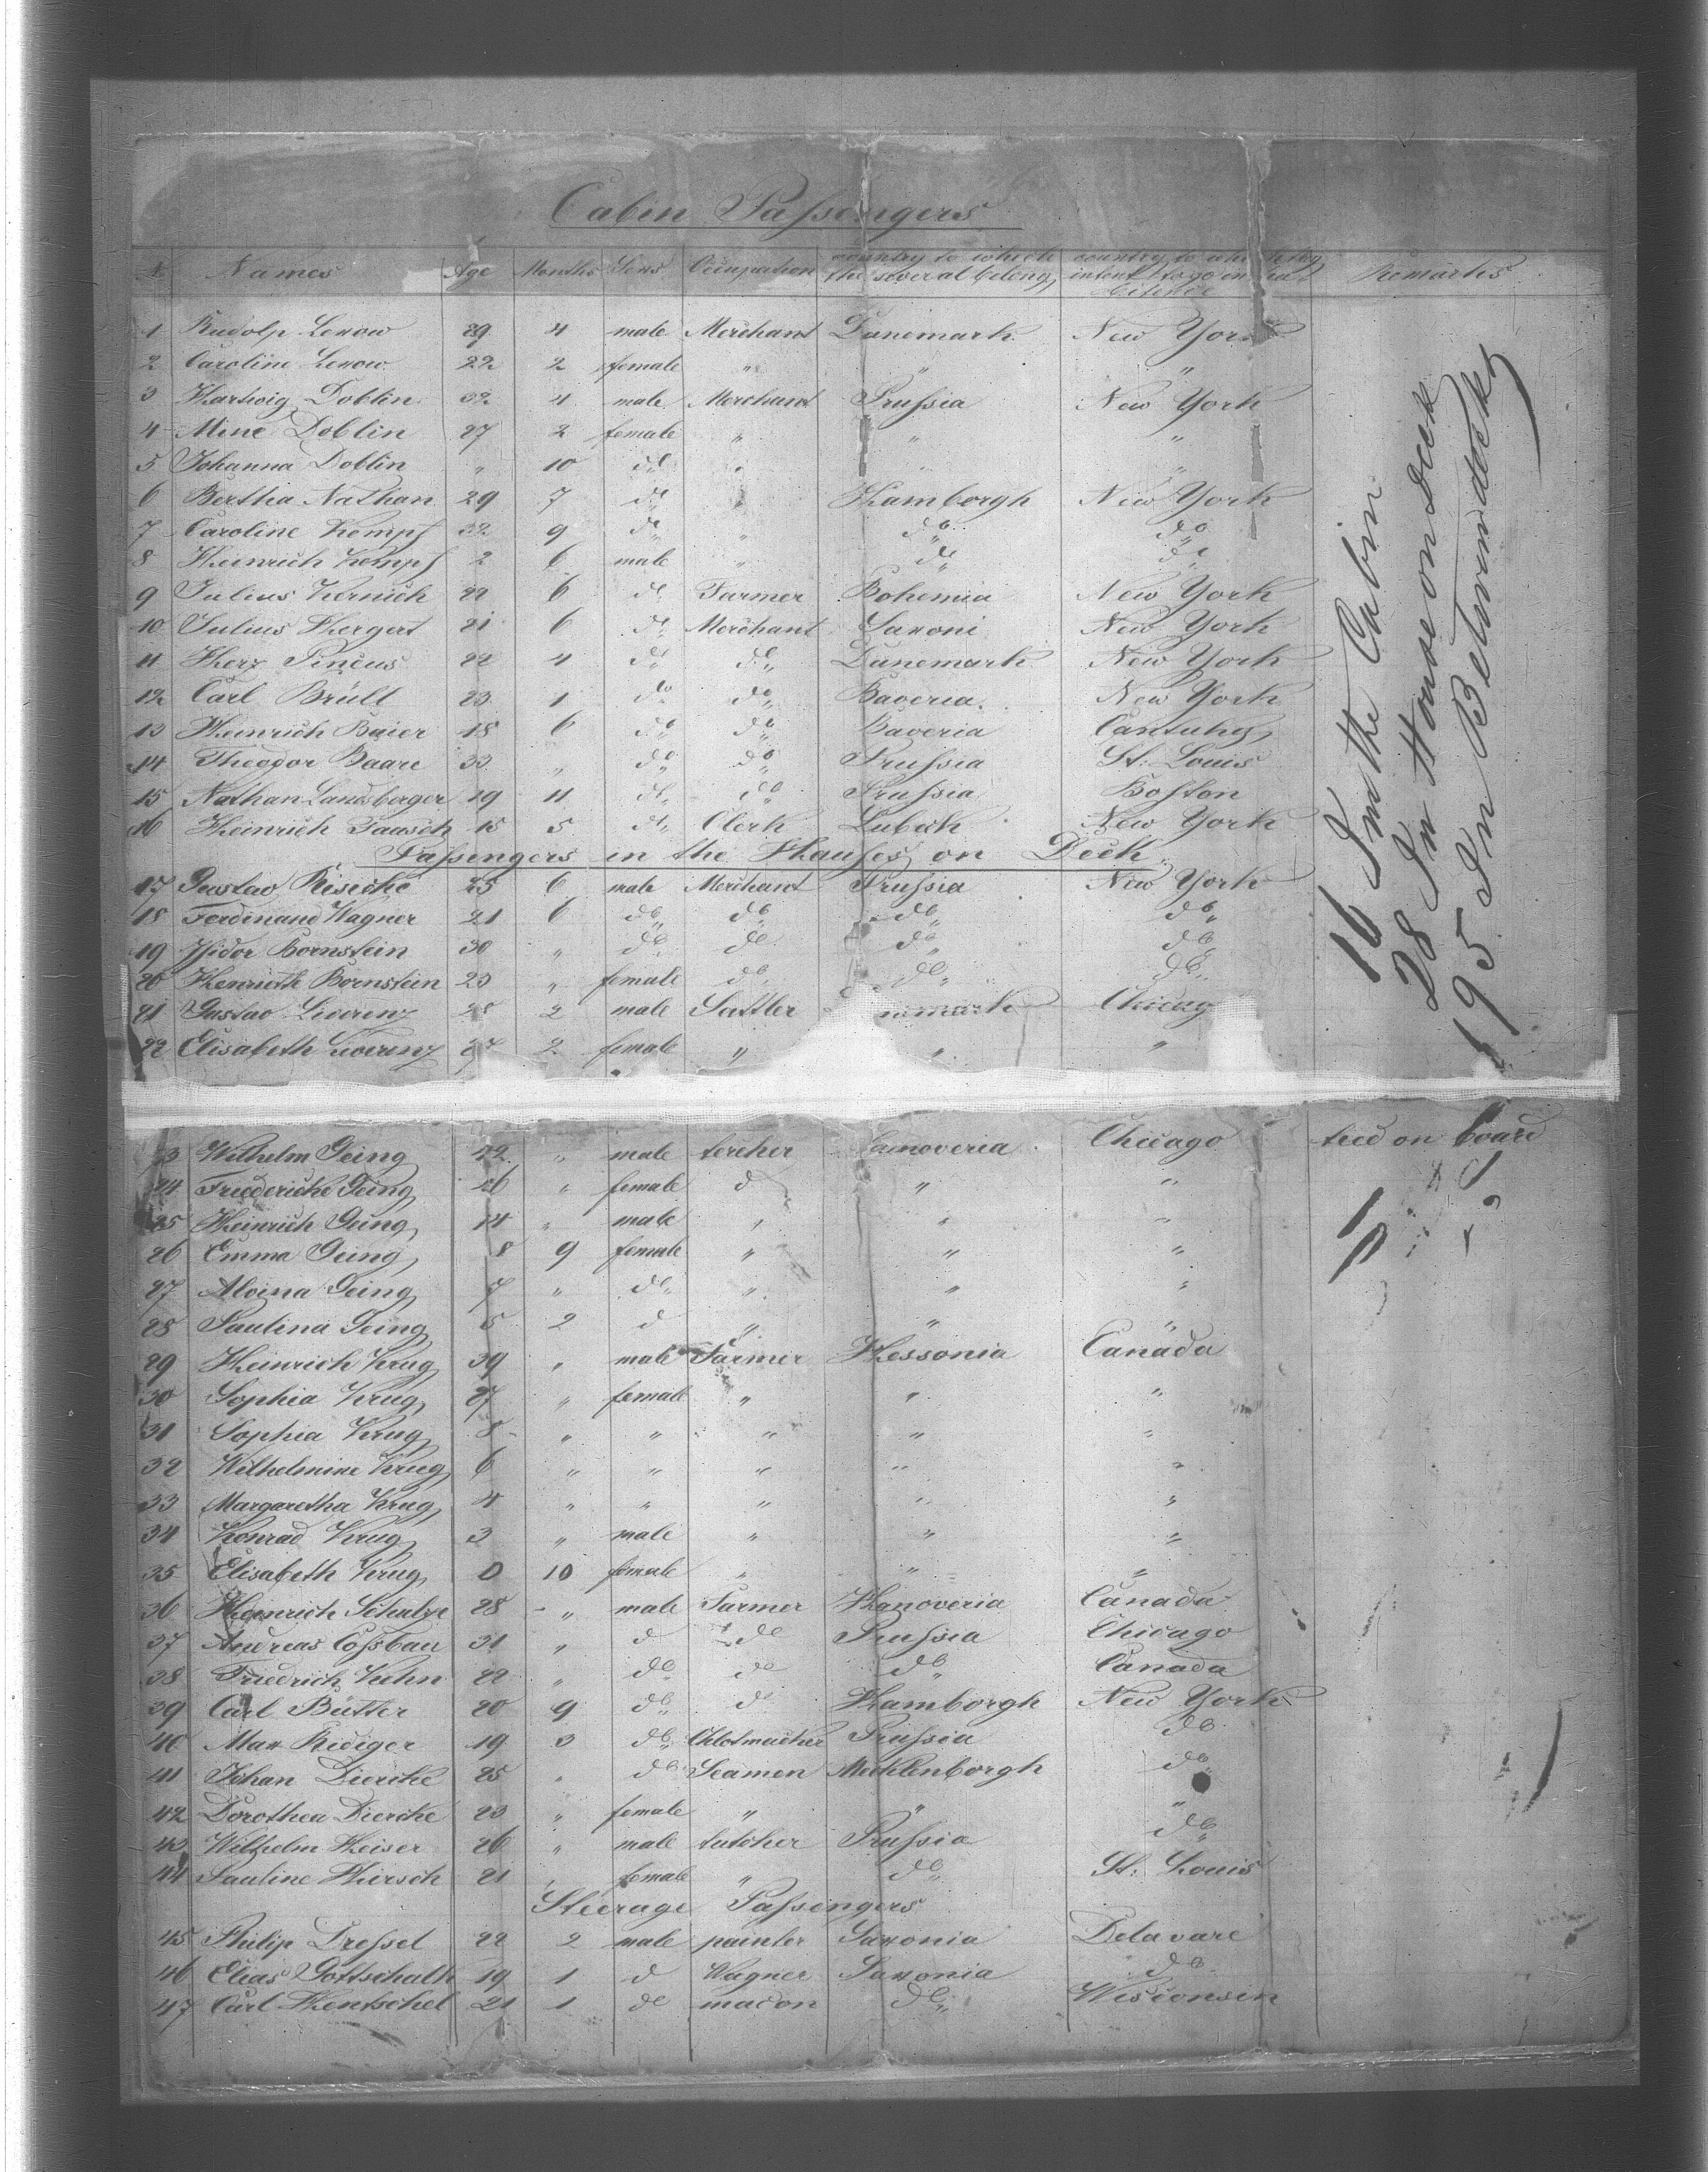 Cabin Passengers
N Names Age Months Sexs Occupation country to which the several belong country to which they intend to go Remarks
1 Rudolp Lexow 29 4 male Merchant Danemark New York
2 Caroline Lexow 22 2 female " " "
3 Hartwig Doblin 32 4 male Merchant Prussia New York
4 Mine Doblin 27 2 female " " "
5 Johanna Doblin " 10 do " " "
6 Bertha Nathan 29 7 do " Hamborgh New York
7 Caroline Kempf 32 9 do " do do
8 Heinrich Kempf 2 6 male " do do
9 Julius 22 6 do Farmer Bohemia New York
10 Julius Hergert 21 6 do Merchant Saxoni New York
11 Herz Pincus 22 4 do do Danemark New York
12 Carl Brüll 23 1 do do Baveria New York
13 Heinrich Baier 18 6 do do Baveria
14 Theodor Baare 33 " do do Prussia St: Louis
15 Nathan Landsberger 19 11 do do Prussia Boston
16 Heinrich Pausch 15 5 do Clerk Lubeck New York
Passengers in the Hauses on Deck
17 Gustav 25 6 male Merchant Prussia New York
18 Ferdinand Wagner 21 6 do do do do
19 Isidor Bornstein 30 " do do do do
20 Henrieth Bornstein 23 " female do do do
21 Gustav 2 male Sattler Chicag
22 Elisabeth 2 female " " "
3 Wilhelm Geing 22 " male Chicago on board
24 Friedericke Geing 26 " female d " "
25 Heinrich Geing 14 " male " " "
26 Emma Geing 8 9 female " " "
27 Alvina Geing 7 " do " " "
28 Paulina Geing 5 2 d " " "
29 Heinrich Krug 39 " male Farmer Hessonia Canada
30 Sophia Krug 27 " female " " "
31 Sophia Krug 8 " " " " "
32 Wilhelmine Krug 6 " " " " "
33 Margaretha Krug 4 " " " " "
34 Konrad Krug 3 " male " " "
35 Elisabeth Krug 0 10 female " " "
36 Heinrich Schulze 28 " male Farmer Hanoveria Canada
37 Andreas Cossbau 31 " d do Prussia Chicago
38 Friedrich Kuhn 22 " do do do Canada
39 Carl Bütter 20 9 do d Hamborgh New York
40 Max Rediger 19 3 do Prussia do
41 Johan Diercke 25 " do Seamen Mecklenborgh do
42 Dorothea Diercke 23 " female " " "
43 Wilhelm Heiser 26 " male Prussia do
44 Pauline Hirsch 21 " female " do St: Louis
Steerage Passengers
45 Philip Dressel 22 2 male painter Saxonia Delavare
46 Elias Gottschalk 19 1 d Wagner Saxonia do
47 Carl Hentschel 21 1 do macon do Wisconsin
16 In the Cabin
28 In House on Deck
195 In Betweendeck